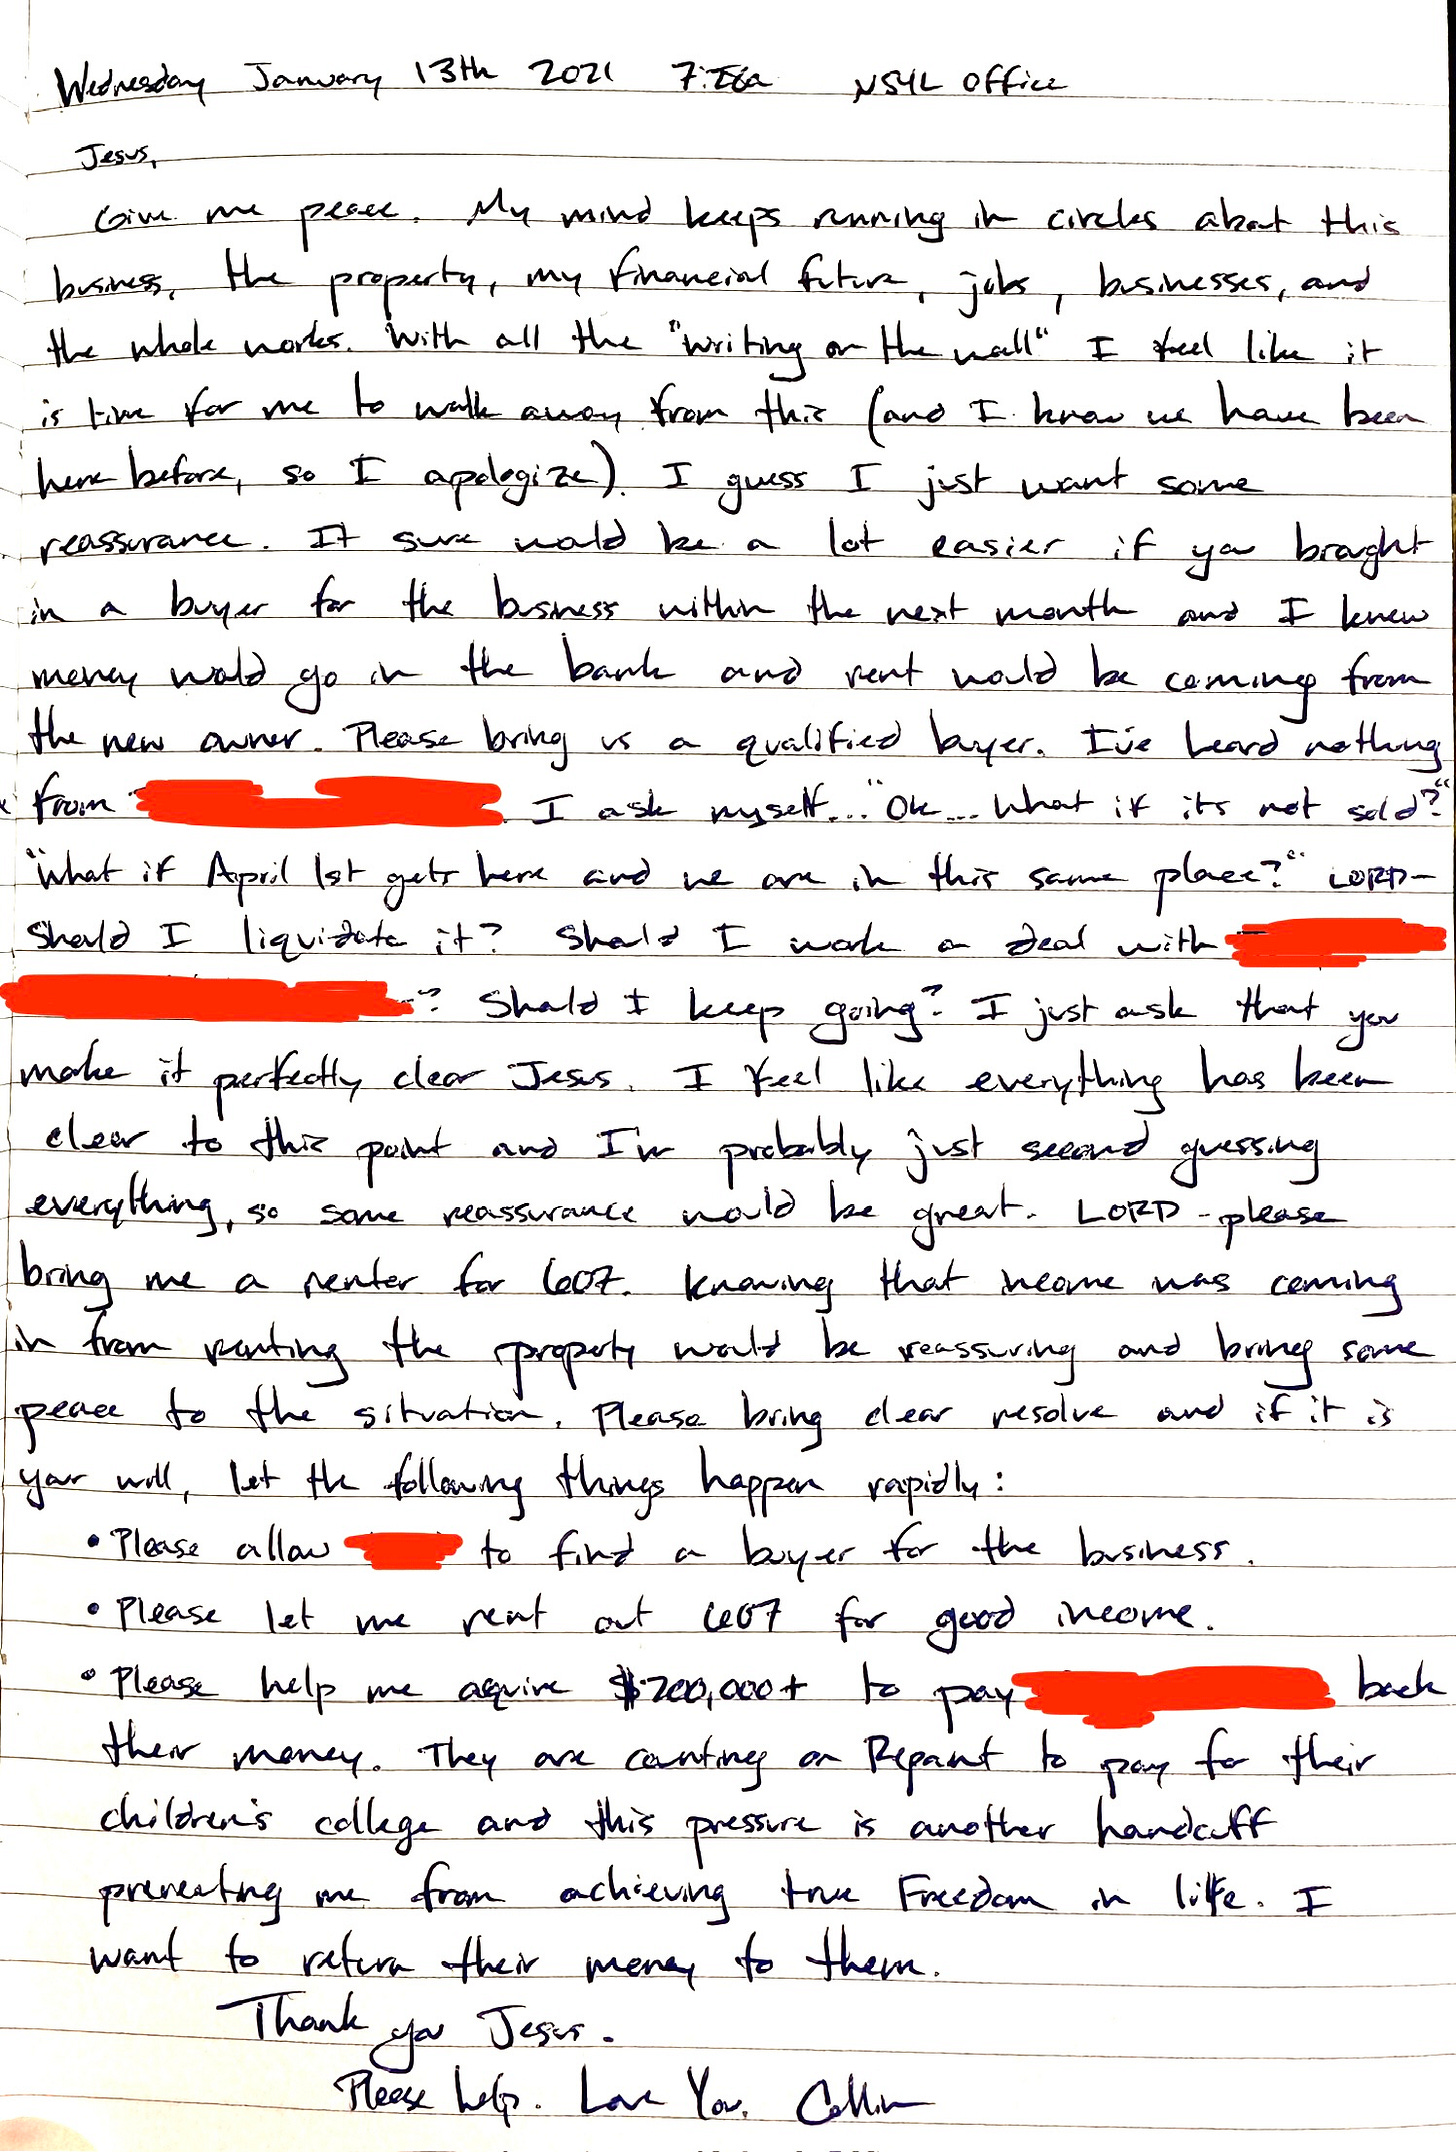 Wednesday January 13th 2021 NSYL Office
Jesus,
Give me peace. My mind keeps running in circles about this
business, the property, my financial future, jobs, businesses, and
the whole works. With all the "writing on the wall" I feel like it
is time for me to walk away from this (and I know we have been
here before, so I apologize). I guess I just want some
reassurance. It sure would be a lot easier if you brought
in a buyer for the business within the next month and I knew
money would go in the bank and rent would be coming from
the new owner. Please bring us a qualified buyer. I've heard nothing
from . I ask myself... "Ok... What if its not sold?"
"What if April 1st gets here and we are in this same place?" LORD-
Should I liquidate it? Should I work a deal with
? Should I keep going? I just ask that you
make it perfectly clear Jesus. I feel like everything has been
clear to this point and I'm probably just second guessing
everything, so some reassurance would be great. LORD - please
bring me a renter for 607. Knowing that income was coming
in from renting the property would be reassuring and bring some
peace to the situation. Please bring clear resolve and if it is
your will, let the following things happen rapidly:
• Please allow to find a buyer for the business.
• Please let me rent out 607 for good income.
• Please help me aquire $200,000+ to pay back
their money. They are counting on Repant to pay for their
children's college and this pressure is another handcuff
preventing me from achieving true Freedom in life. I
want to return their money to them.
Thank you Jesus.
Please help. Love You, Collin